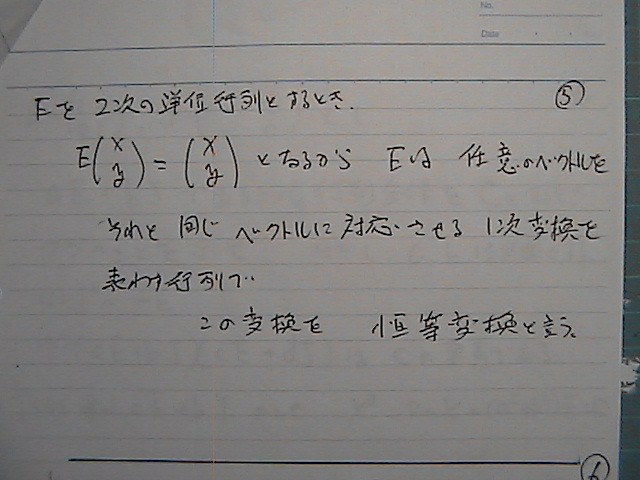 No.
Date
⑤
Eを 2次の単位行列とするとき.
E(x y) = (x y) となるから Eは 任意のベクトルを
それと同じ ベクトルに対応させる 1次変換を
表わす行列で
この変換を 恒等変換と言う。
⑥